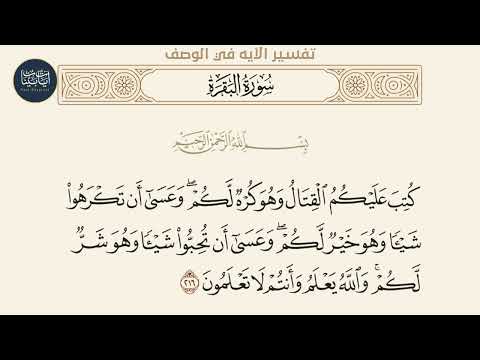 تفسير الآيه في الوصف
سُورَةُ البَقَرَةِ
بِسْمِ اللَّهِ الرَّحْمَٰنِ الرَّحِيمِ
كُتِبَ عَلَيْكُمُ الْقِتَالُ وَهُوَ كُرْهٌ لَّكُمْ ۖ وَعَسَىٰٓ أَن تَكْرَهُوا۟
شَيْـًٔا وَهُوَ خَيْرٌ لَّكُمْ ۖ وَعَسَىٰٓ أَن تُحِبُّوا۟ شَيْـًٔا وَهُوَ شَرٌّ
لَّكُمْ ۗ وَاللَّهُ يَعْلَمُ وَأَنتُمْ لَا تَعْلَمُونَ ٢١٦